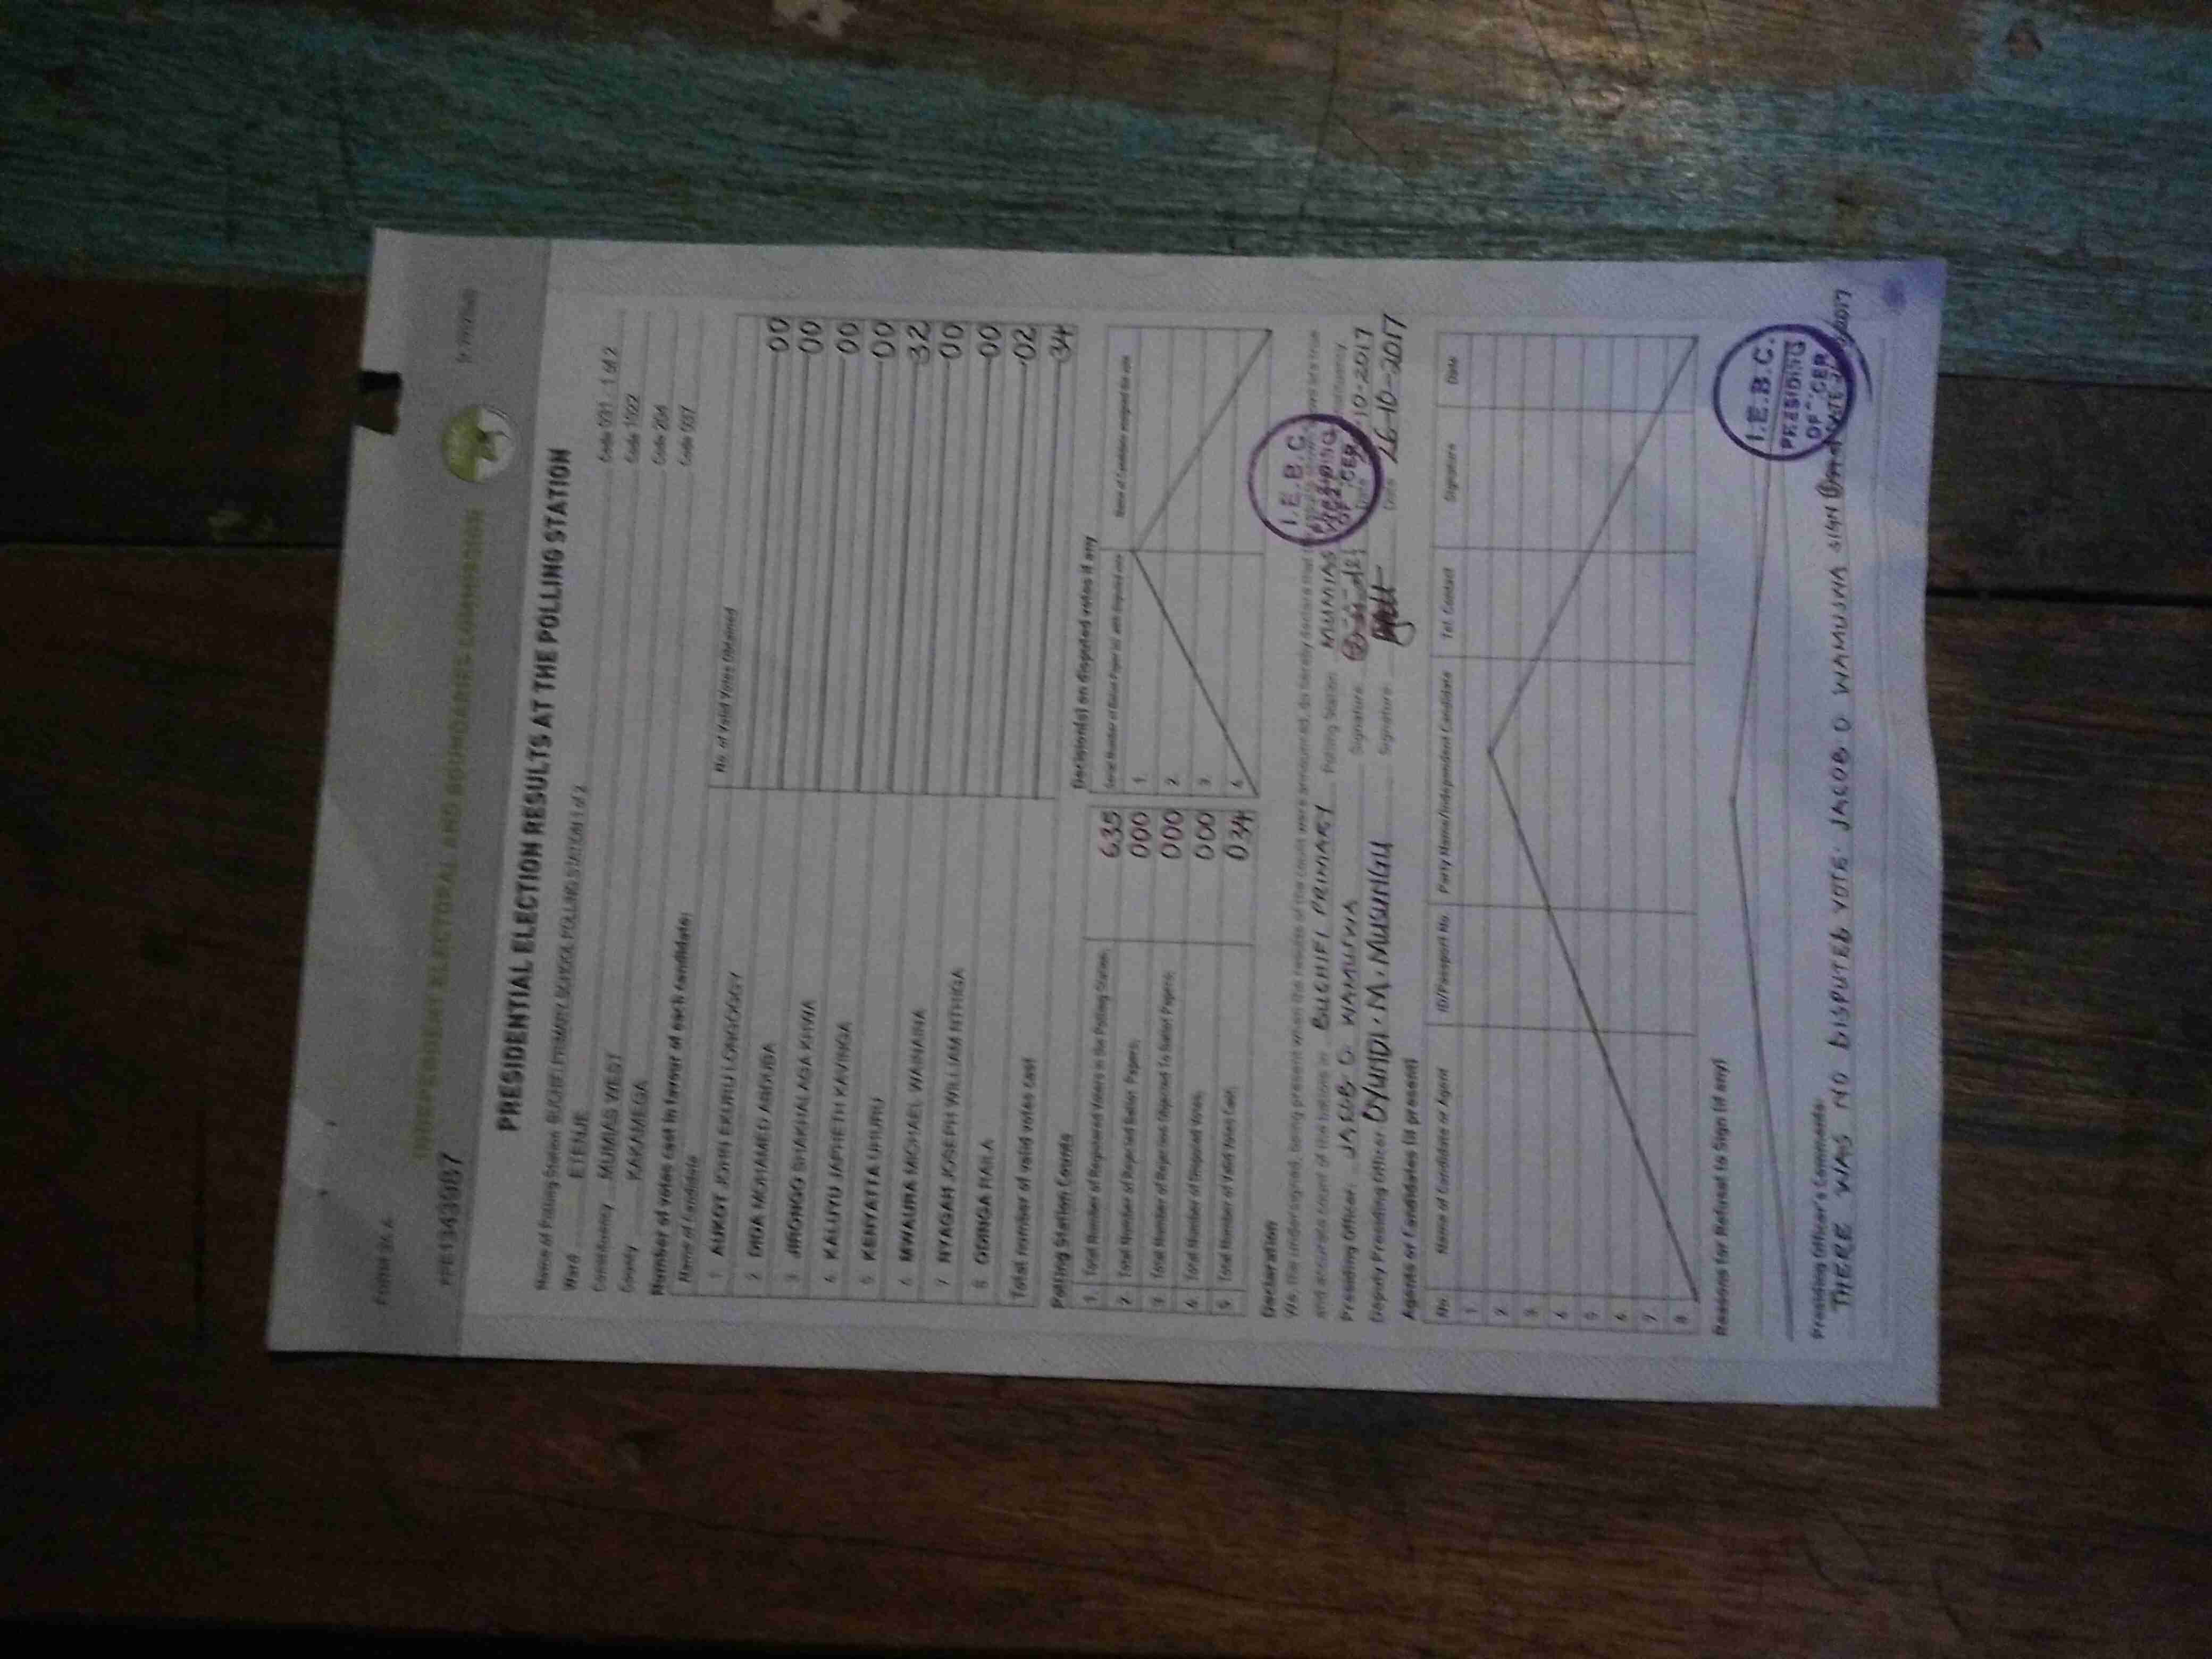 FORM 34A
INDEPENDENT ELECTORAL AND BOUNDARIES COMMISSION
PRESIDENTIAL ELECTION RESULTS AT THE POLLING STATION
Name of Polling Station BUCHIFI PRIMARY SCHOOL POLLING STATION 1 of 2 Code 031 - 1 of 2
Ward ETENJE Code 1022
Constituency MUMIAS WEST Code 204
County KAKAMEGA Code 037
Number of votes cast in favour of each candidate:
Name of Candidate No. of Valid Votes Obtained
1 AUKOT JOHN EKURU LONGOGGY 00
2 DIDA MOHAMED ABDUBA 00
3 JIRONGO SHAKHALAGA KHWA 00
4 KALUYU JAPHETH KAVINGA 00
5 KENYATTA UHURU 32
6 MWAURA MICHAEL WAINAINA 00
7 NYAGAH JOSEPH WILLIAM NTHIGA 00
8 ODINGA RAILA 02
Total number of valid votes cast 34
Polling Station Counts
1. Total Number of Registered Voters in the Polling Station 635
2. Total Number of Rejected Ballot Papers 000
3. Total Number of Rejection Objected To Ballot Papers 000
4. Total Number of Disputed Votes 000
5. Total Number of Valid Votes Cast 034
Decision(s) on disputed votes if any
Serial Number of Ballot Paper (s) with disputed vote Name of Candidate awarded the vote
1.
2.
3.
4.
Declaration
We, the undersigned, being present when the results of the count were announced, do hereby declare that
and accurate count of the ballots in BUCHIFI PRIMARY Polling Station MUMIAS Constituency
Presiding Officer JACOB O WAMUSWA Signature Date 10-2017
Deputy Presiding Officer OYUNDI.M.MUSUNGU Signature Date 26-10-2017
I.E.B.C.
PRESIDING
OFFICER
Agents or Candidates (if present)
No. Name of Candidate or Agent ID/Passport No. Party Name/Independent Candidate Tel. Contact Signature Date
1
2
3
4
5
6
7
8
Reasons for Refusal to Sign (if any)
I.E.B.C.
PRESIDING
OFFICER
Presiding Officer's Comments:
THERE WAS NO DISPUTED VOTE. JACOB O WAMUSWA SIGN DATE 2017